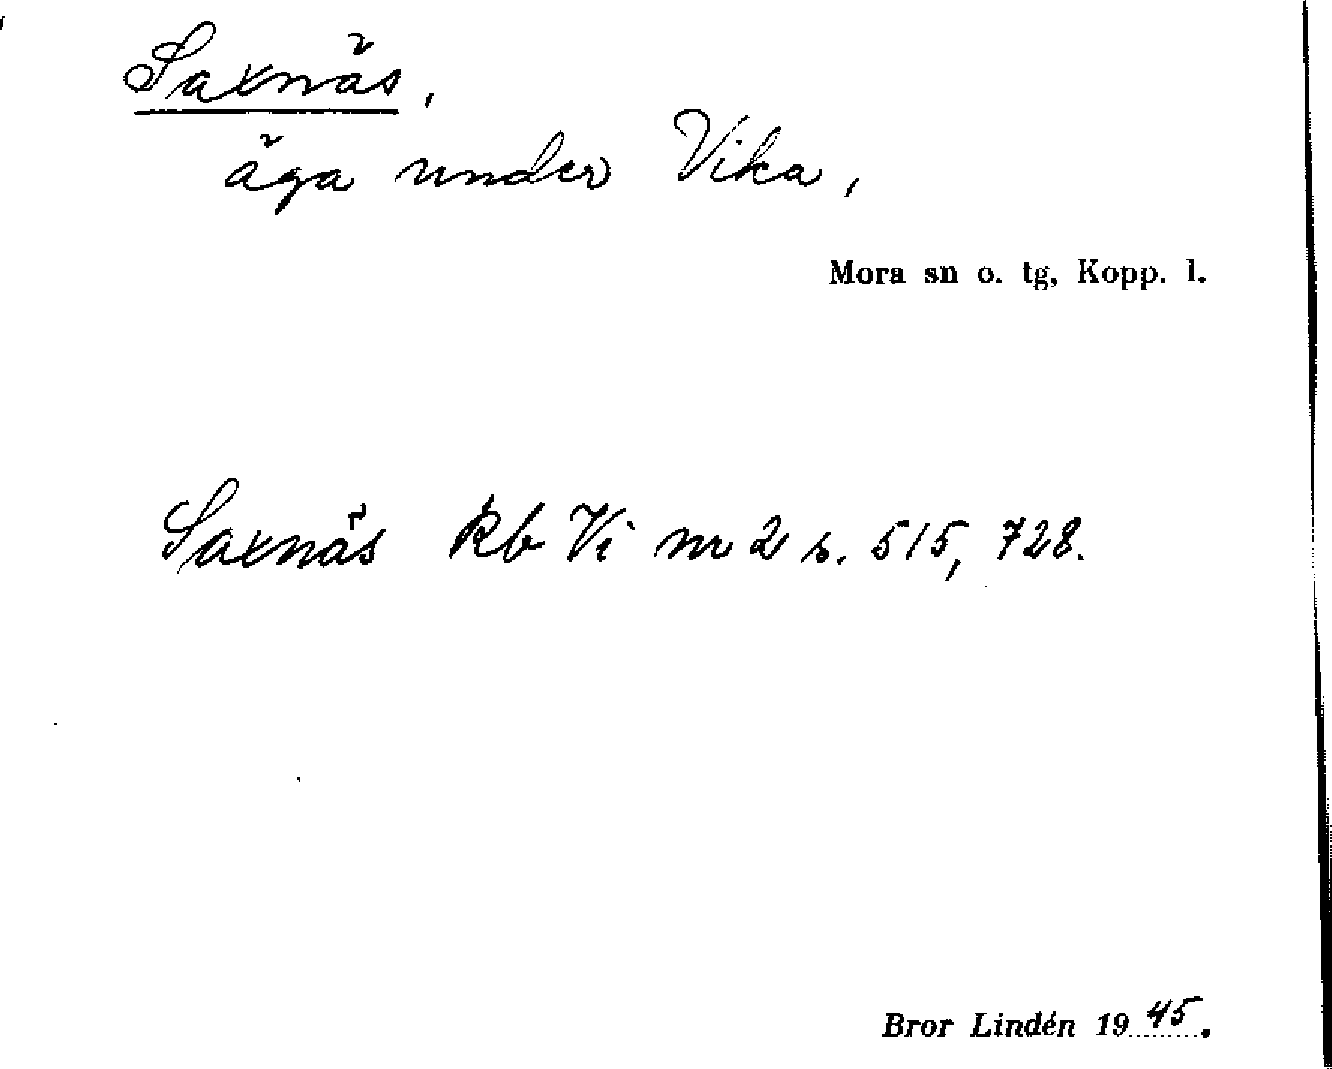 Saxnäs,
äga under Vika,
Mora sn o. tg, Kopp. l.
Saxnäs kb Vi nr 2 s. 515, 728.
Bror Lindén 1945.